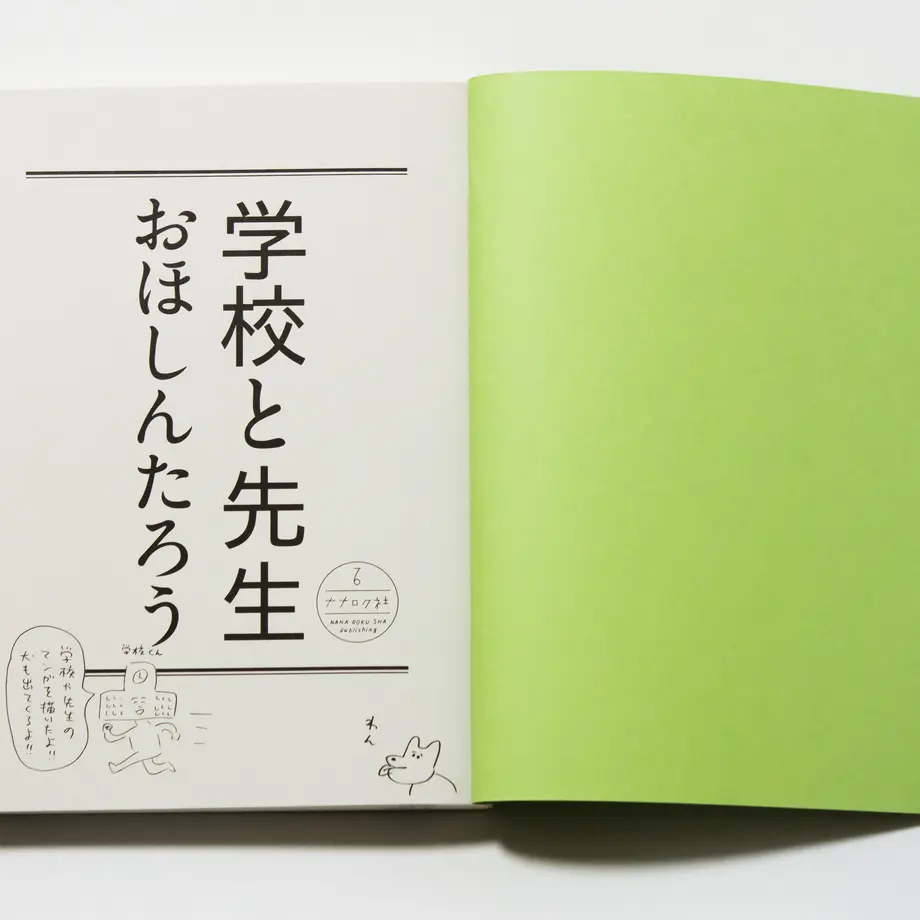 学校と先生
おほしんたろう
ナナロク社
NANA ROKU SHA
publishing
学校くん
学校や先生の
マンガを描いたよ!!
犬も出てくるよ!!
わん